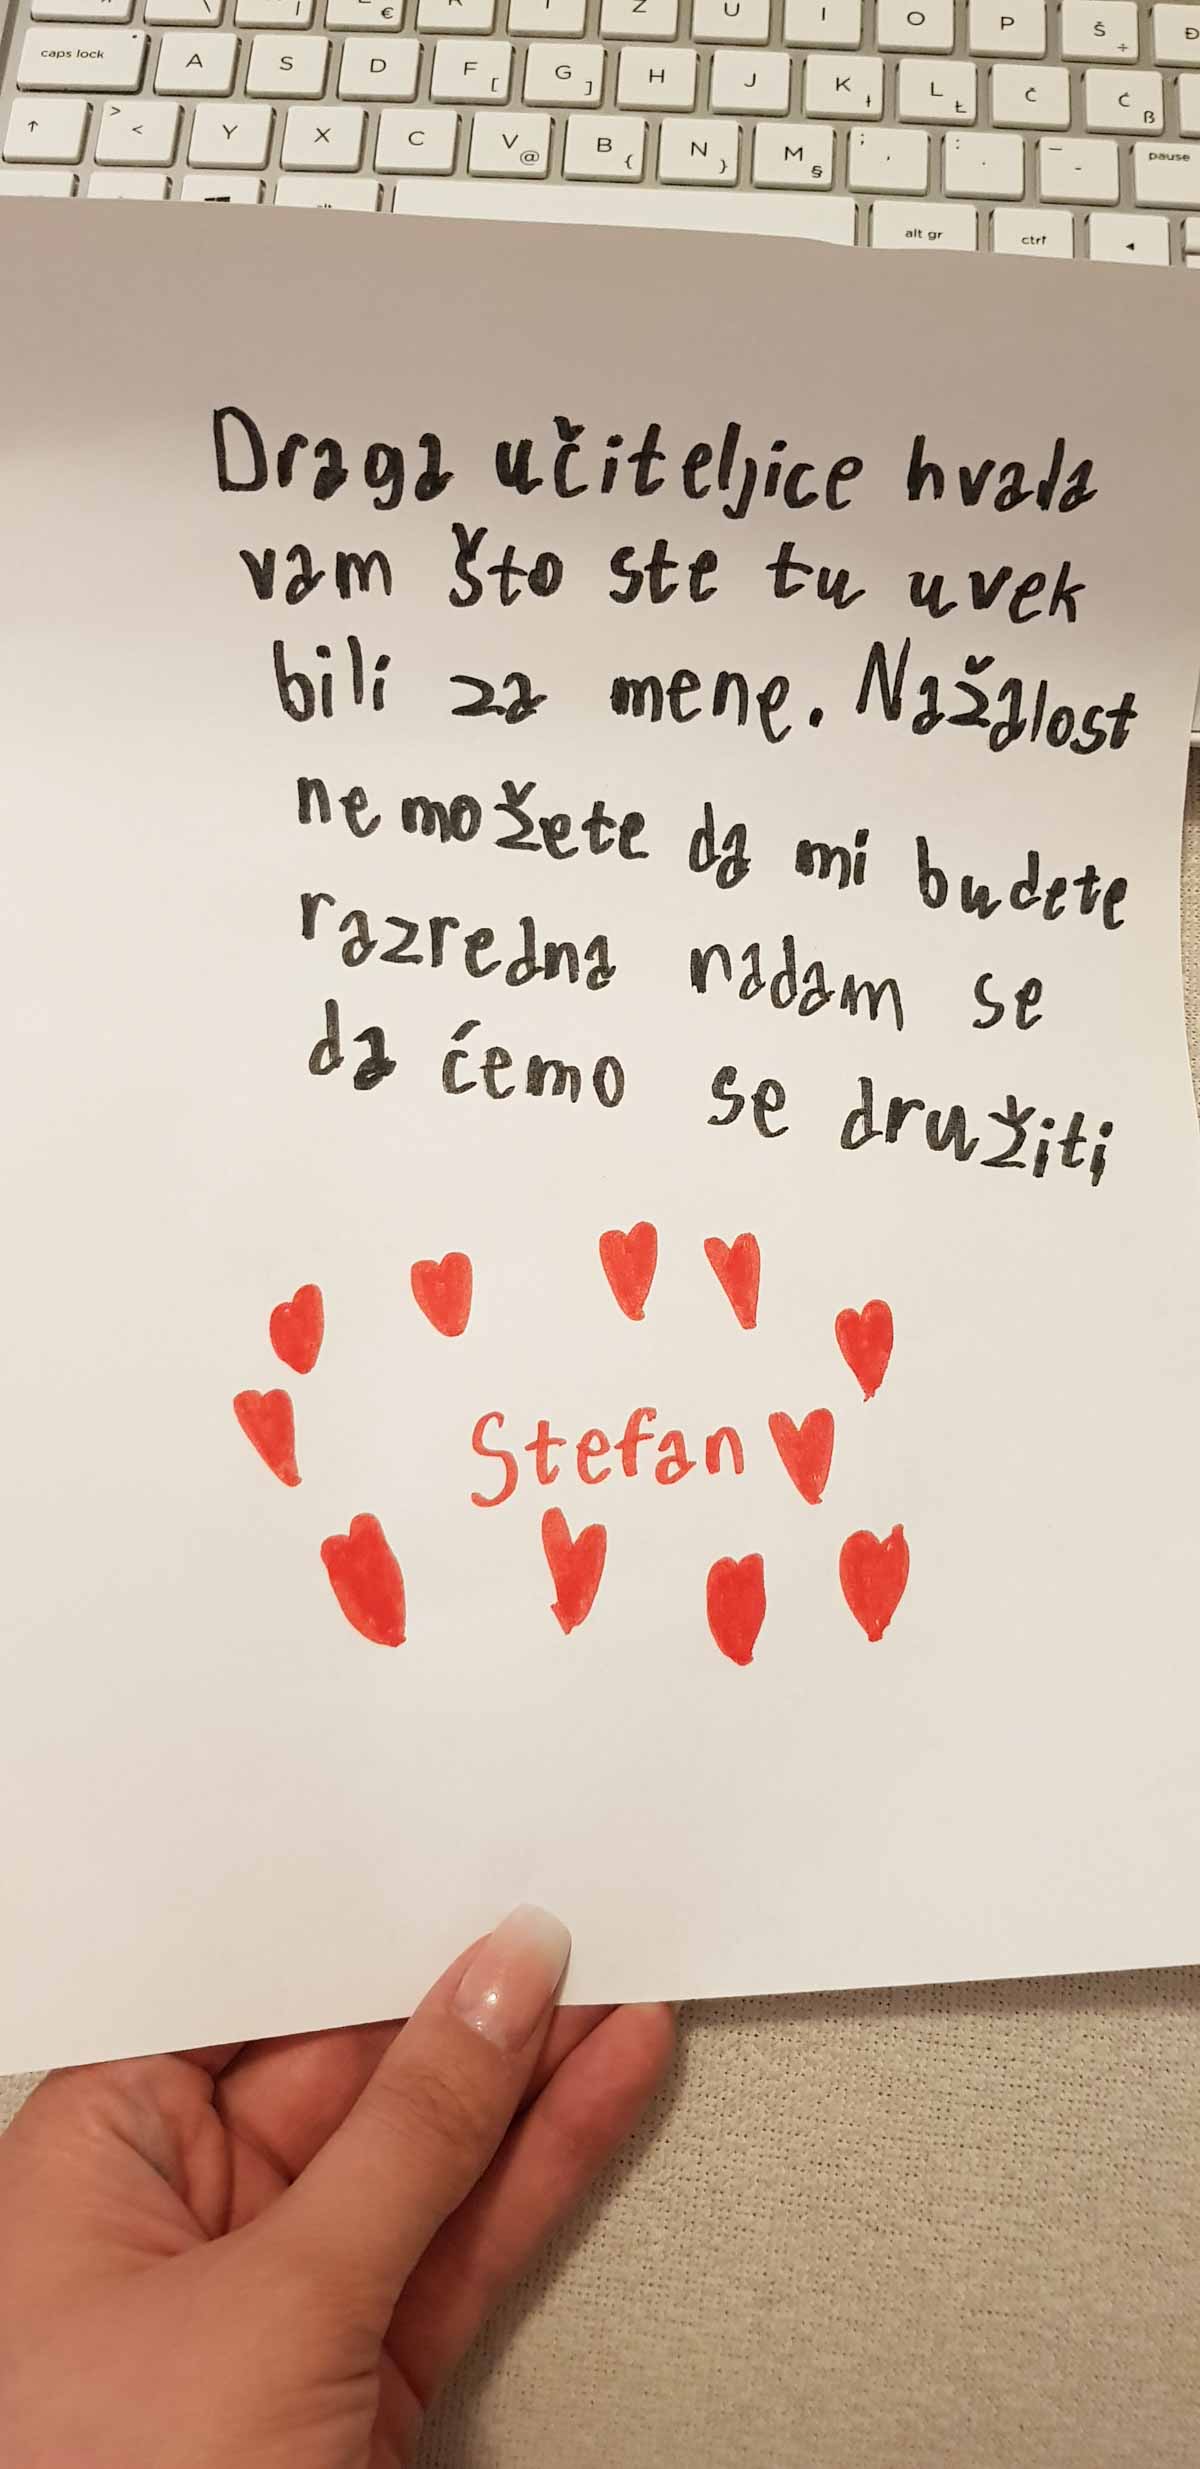 Z U I O P Š ÷ Đ
€
caps lock A S D F [ G ] H J K ł L Ł Č Ć ß
↑ > < Y X C V @ B { N } M § ; , : . _ - pause
alt gr ctrl ◄
Draga učiteljice hvala
vam što ste tu uvek
bili za mene. Nažalost
ne možete da mi budete
razredna nadam se
da ćemo se družiti
Stefan